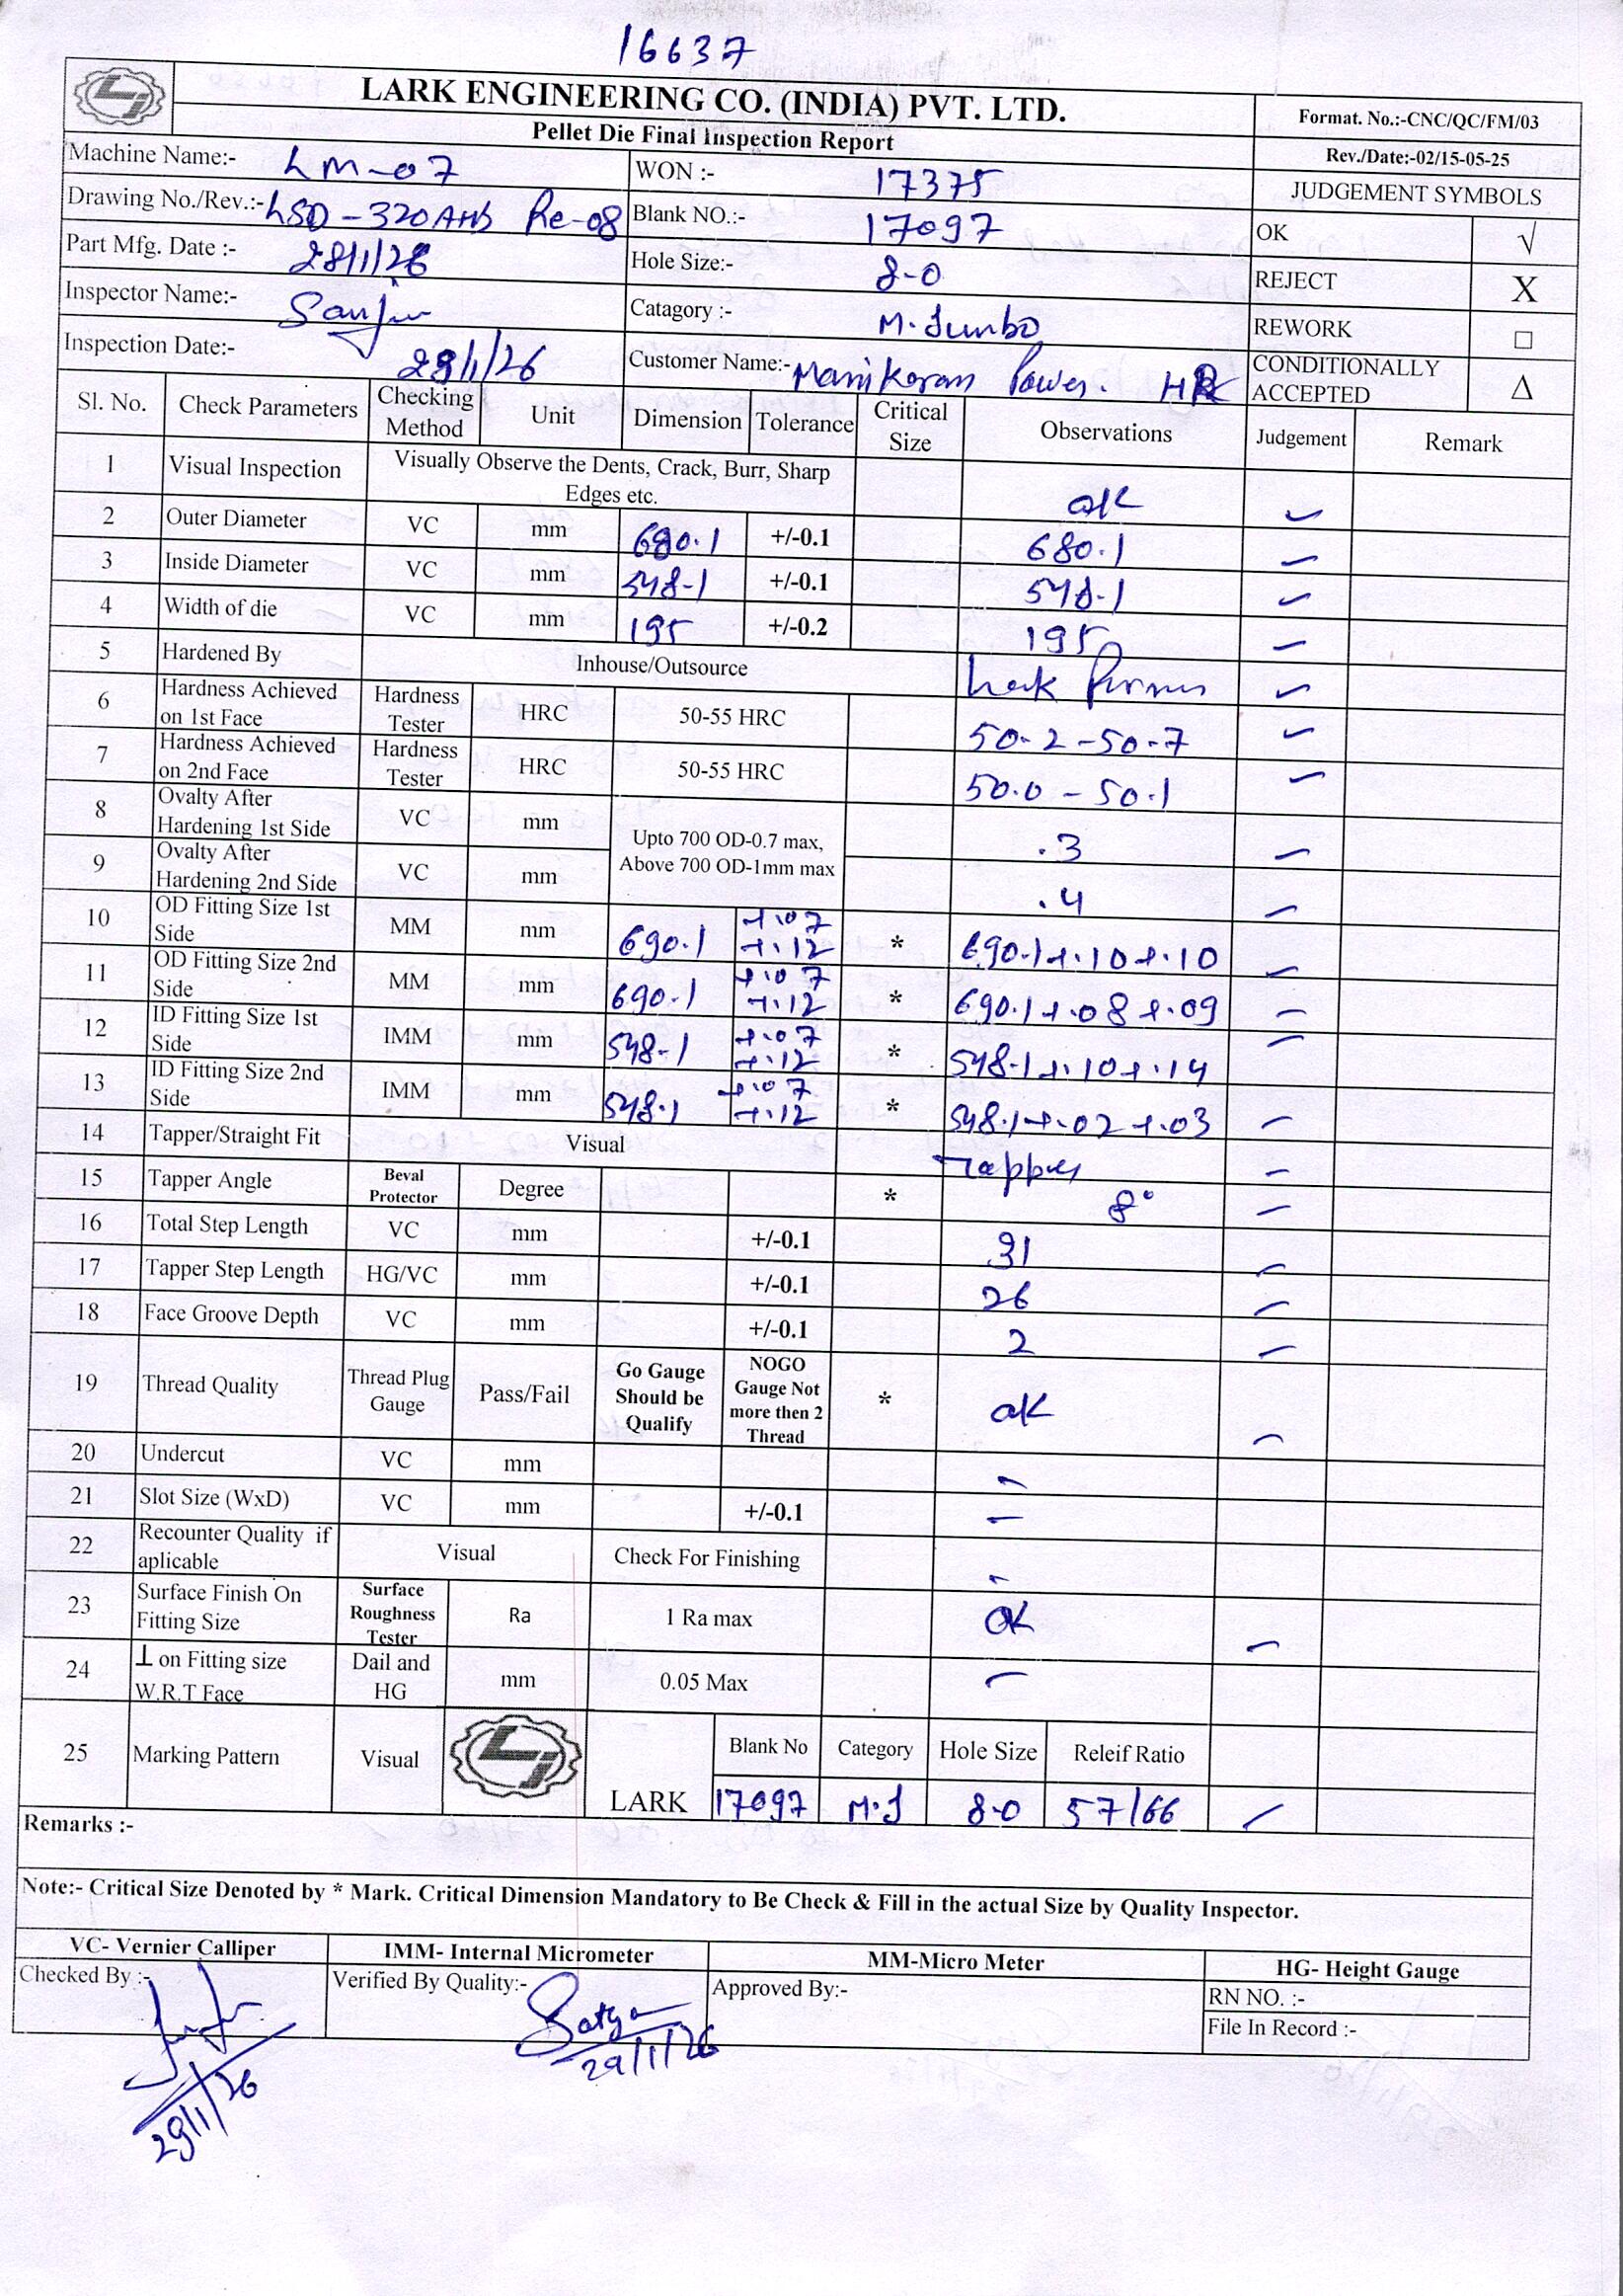 16637
LARK ENGINEERING CO. (INDIA) PVT. LTD.
Pellet Die Final Inspection Report
Format. No.:-CNC/QC/FM/03
Rev./Date:-02/15-05-25
Machine Name:- LM-07 WON :- 17375 JUDGEMENT SYMBOLS
Drawing No./Rev.:- LSD-320AHS Re-08 Blank NO.:- 17097 OK √
Part Mfg. Date :- 28/1/26 Hole Size:- 8-0 REJECT X
Inspector Name:- Sanjiv Catagory :- M.Jumbo REWORK □
Inspection Date:- 29/1/26 Customer Name:- Manikaran Power. CONDITIONALLY ACCEPTED Δ
Sl. No. Check Parameters Checking Method Unit Dimension Tolerance Critical Size Observations Judgement Remark
1 Visual Inspection Visually Observe the Dents, Crack, Burr, Sharp Edges etc. ok ✓
2 Outer Diameter VC mm 680.1 +/-0.1 680.1 ✓
3 Inside Diameter VC mm 548-1 +/-0.1 548-1 ✓
4 Width of die VC mm 195 +/-0.2 195 ✓
5 Hardened By Inhouse/Outsource Lark ✓
6 Hardness Achieved on 1st Face Hardness Tester HRC 50-55 HRC 50-2-50-7 ✓
7 Hardness Achieved on 2nd Face Hardness Tester HRC 50-55 HRC 50.0-50.1 ✓
8 Ovalty After Hardening 1st Side VC mm Upto 700 OD-0.7 max, Above 700 OD-1mm max .3 ✓
9 Ovalty After Hardening 2nd Side VC mm .4 ✓
10 OD Fitting Size 1st Side MM mm 690.1 +.07 +.12 * 690.1+.10+.10 ✓
11 OD Fitting Size 2nd Side MM mm 690.1 +.07 +.12 * 690.1+.08+.09 ✓
12 ID Fitting Size 1st Side IMM mm 548-1 +.07 +.12 * 548-1+.10+.14 ✓
13 ID Fitting Size 2nd Side IMM mm 548.1 +.07 +.12 * 548.1+.02+.03 ✓
14 Tapper/Straight Fit Visual Tapper ✓
15 Tapper Angle Beval Protector Degree * 8° ✓
16 Total Step Length VC mm +/-0.1 31 ✓
17 Tapper Step Length HG/VC mm +/-0.1 26 ✓
18 Face Groove Depth VC mm +/-0.1 2 ✓
19 Thread Quality Thread Plug Gauge Pass/Fail Go Gauge Should be Qualify NOGO Gauge Not more then 2 Thread * ok ✓
20 Undercut VC mm -
21 Slot Size (WxD) VC mm +/-0.1 -
22 Recounter Quality if aplicable Visual Check For Finishing -
23 Surface Finish On Fitting Size Surface Roughness Tester Ra 1 Ra max ok ✓
24 ⊥ on Fitting size W.R.T Face Dail and HG mm 0.05 Max -
25 Marking Pattern Visual LARK Blank No Category Hole Size Releif Ratio
17097 M.J 8-0 57/66 ✓
Remarks :-
Note:- Critical Size Denoted by * Mark. Critical Dimension Mandatory to Be Check & Fill in the actual Size by Quality Inspector.
VC- Vernier Calliper IMM- Internal Micrometer MM-Micro Meter HG- Height Gauge
Checked By :- Verified By Quality:- Satya Approved By:- RN NO. :-
File In Record :-
29/1/26 29/1/26